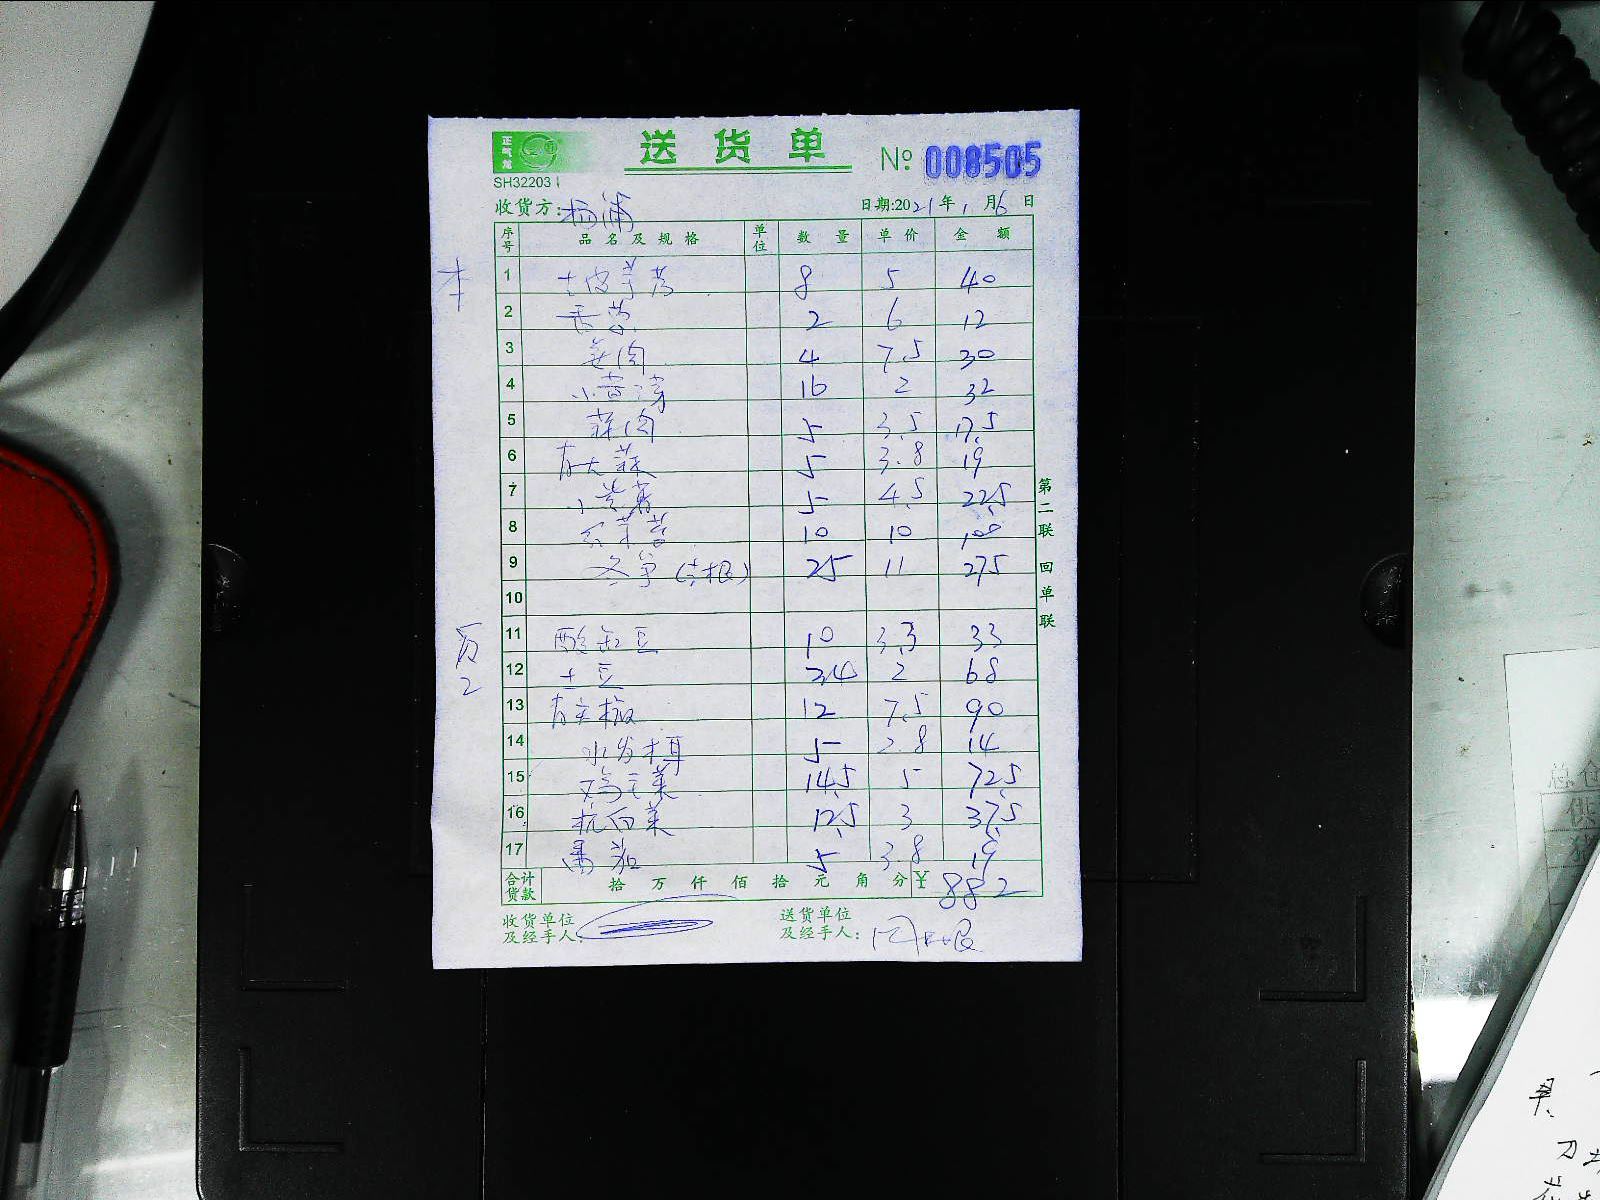 正气龙
送货单
№ 008505
SH32203
收货方: 杨浦
日期:2021年1月6日
序号 品名及规格 单位 数量 单价 金额
本
1 去皮芋艿 8 5 40
2 香菇 2 6 12
3 姜肉 4 7.5 30
4 小黄芽 16 2 32
5 蒜肉 5 3.5 17.5
6 有大蒜 5 3.8 19
7 小 5 4.5 22.5
8 10 10 100
9 冬笋(去根) 25 11 275
10
万2
11 酸缸豆 10 3.3 33
12 土豆 34 2 68
13 有尖椒 12 7.5 90
14 水发木耳 5 2.8 14
15 鸡毛菜 14.5 5 72.5
16 杭白菜 12.5 3 37.5
17 番茄 5 3.8 19
合计货款 拾 万 仟 佰 拾 元 角 分 ¥ 882
收货单位及经手人:
送货单位及经手人:
第二联 回单联